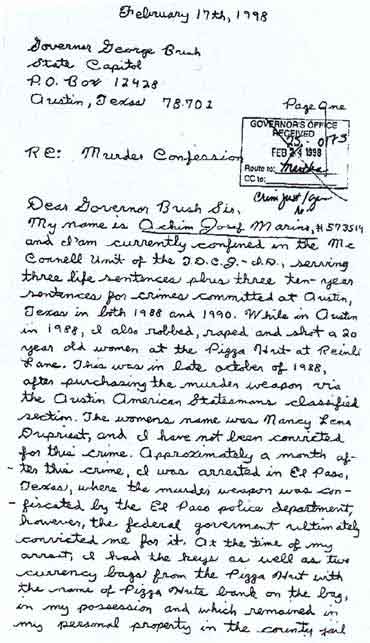 February 17th, 1998
Governor George Bush
State Capitol
P.O. Box 12428
Austin, Texas 78701
Page One
GOVERNOR'S OFFICE
RECEIVED
FEB 24 1998
Route to: Martha
CC to:
RE: Murder Confession
Dear Governor Bush Sir,
My name is Achim Josef Marino, #573514
and I'am currently confined in the Mc
Connell Unit of the T.D.C.J.-I.D., serving
three life sentences plus three ten-year
sentences for crimes committed at Austin,
Texas in both 1988 and 1990. While in Austin
in 1988, I also robbed, raped and shot a 20
year old women at the Pizza Hut at Reinli
Lane. This was in late october of 1988,
after purchasing the murder weapon via
the Austin American Statesmans classified
section. The womens name was Nancy Lena
Dupriest, and I have not been convicted
for this crime. Approximately a month af-
-ter this crime, I was arrested in El Paso,
Texas, where the murder weapon was con-
-fiscated by the El Paso police department,
however, the federal goverment ultimately
convicted me for it. At the time of my
arrest, I had the keys as well as two
currency bags from the Pizza Hut with
the name of Pizza Huts bank on the bag,
in my possession and which remained in
my personal property in the county jail